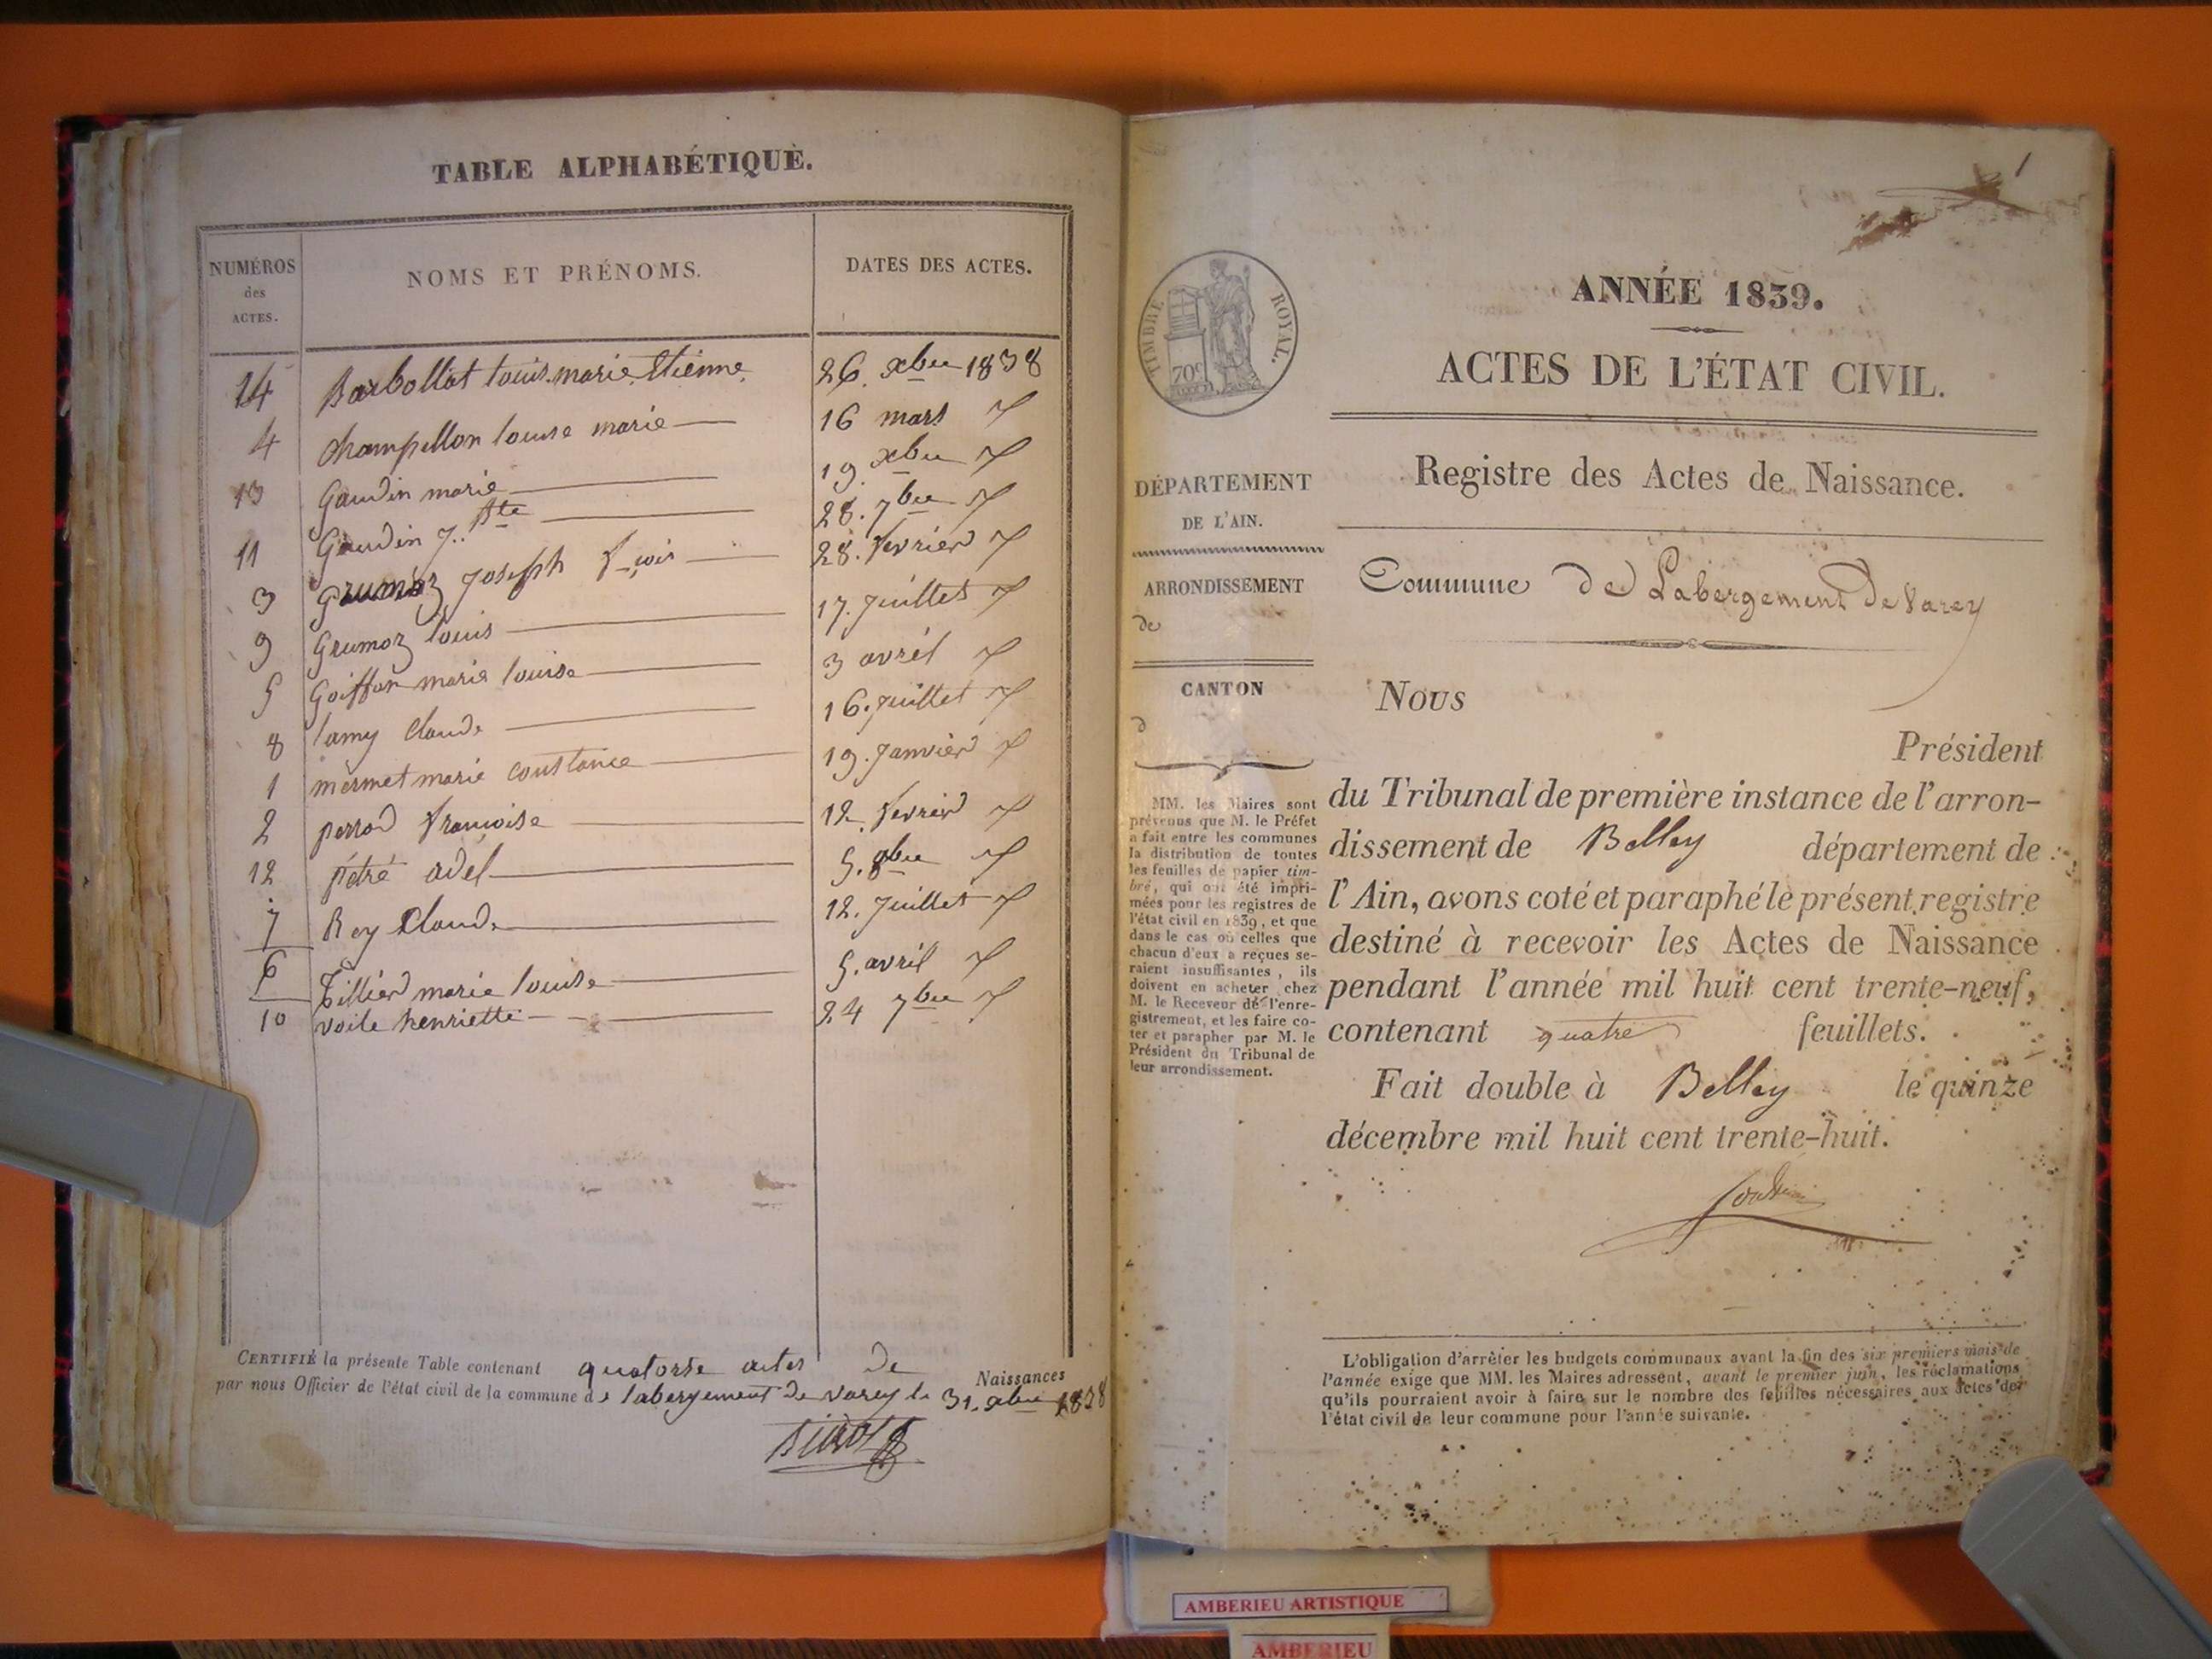 TABLE ALPHABÉTIQUE.
NUMÉROS
des
ACTES.
NOMS ET PRÉNOMS.
DATES DES ACTES.
14 Barbollat louis marie Etienne 26. xbre 1838
4 Champellon louise marie 16 mars
13 Gaudin marie 19. xbre
11 Gaudin J. Bte 28. 7bre
3 Grumoz Joseph f-çois 28. fevrier
9 Grumoz louis 17. Juillet
5 Goiffon marie louise 3 avril
8 lamy Claude 16. Juillet
1 mermet marie constance 19. Janvier
2 perrod francoise 12. fevrier
12 pétré adel 5. 9bre
7 Rey Claude 12. Juillet
6 Tillier marie louise 5. avril
10 voile henriette 24 7bre
CERTIFIÉ la présente Table contenant quatorze actes de Naissances
par nous Officier de l'état civil de la commune de labergement de varey le 31. xbre 1838
1
TIMBRE ROYAL.
70c
ANNÉE 1839.
ACTES DE L'ÉTAT CIVIL.
Registre des Actes de Naissance.
DÉPARTEMENT
DE L'AIN.
ARRONDISSEMENT
de
CANTON
d
Commune de Labergement de Varey
MM. les Maires sont
prévenus que M. le Préfet
a fait entre les communes
la distribution de toutes
les feuilles de papier tim-
bré, qui ont été impri-
mées pour les registres de
l'état civil en 1839, et que
dans le cas où celles que
chacun d'eux a reçues se-
raient insuffisantes, ils
doivent en acheter chez
M. le Receveur de l'enre-
gistrement, et les faire co-
ter et parapher par M. le
Président du Tribunal de
leur arrondissement.
Nous
Président
du Tribunal de première instance de l'arron-
dissement de Belley département de
l'Ain, avons coté et paraphé le présent registre
destiné à recevoir les Actes de Naissance
pendant l'année mil huit cent trente-neuf,
contenant quatre feuillets.
Fait double à Belley le quinze
décembre mil huit cent trente-huit.
L'obligation d'arrêter les budgets communaux avant la fin des six premiers mois de
l'année exige que MM. les Maires adressent, avant le premier juin, les réclamations
qu'ils pourraient avoir à faire sur le nombre des feuilles nécessaires aux actes de
l'état civil de leur commune pour l'année suivante.
AMBERIEU ARTISTIQUE
AMBERIEU